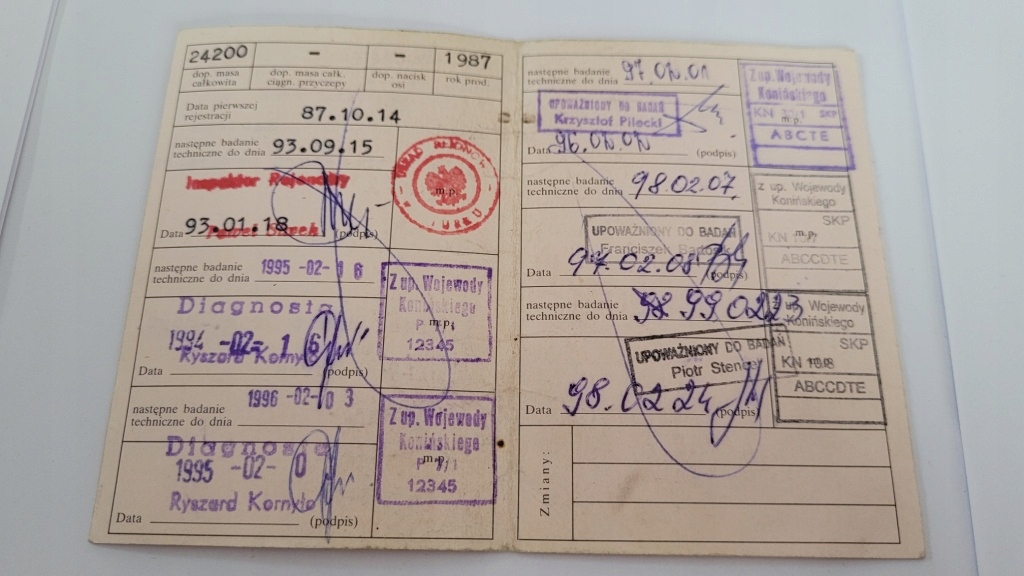 24200 - - 1987
dop. masa całkowita dop. masa całk. ciągn. przyczepy dop. nacisk osi rok prod.
Data pierwszej rejestracji 87.10.14
następne badanie techniczne do dnia 93.09.15
Inspektor Rejonowy
m.p.
93.01.18
Data (podpis)
następne badanie techniczne do dnia 1995-02-16
Diagnosta
1994-02-16
Ryszard Kornyło
Data (podpis)
Z up. Wojewody
Konińskiego
m.p.
12345
następne badanie techniczne do dnia 1996-02-03
Diagnosta
1995-02-0
Ryszard Kornyło
Data (podpis)
Z up. Wojewody
Konińskiego
m.p.
12345
następne badanie techniczne do dnia
UPOWAŻNIONY DO BADAŃ
Krzysztof Pilecki
Data (podpis)
Z up. Wojewody
Konińskiego
KN m.p. SKP
ABCTE
następne badanie techniczne do dnia 98.02.07.
UPOWAŻNIONY DO BADAŃ
Franciszek
Data 97.02.08 (podpis)
z up. Wojewody
Konińskiego
SKP
KN m.p.
ABCCDTE
następne badanie techniczne do dnia 98 99.02.23
UPOWAŻNIONY DO BADAŃ
Piotr
Data 98.02.24 (podpis)
z up. Wojewody
Konińskiego
SKP
KN
ABCCDTE
Zmiany: